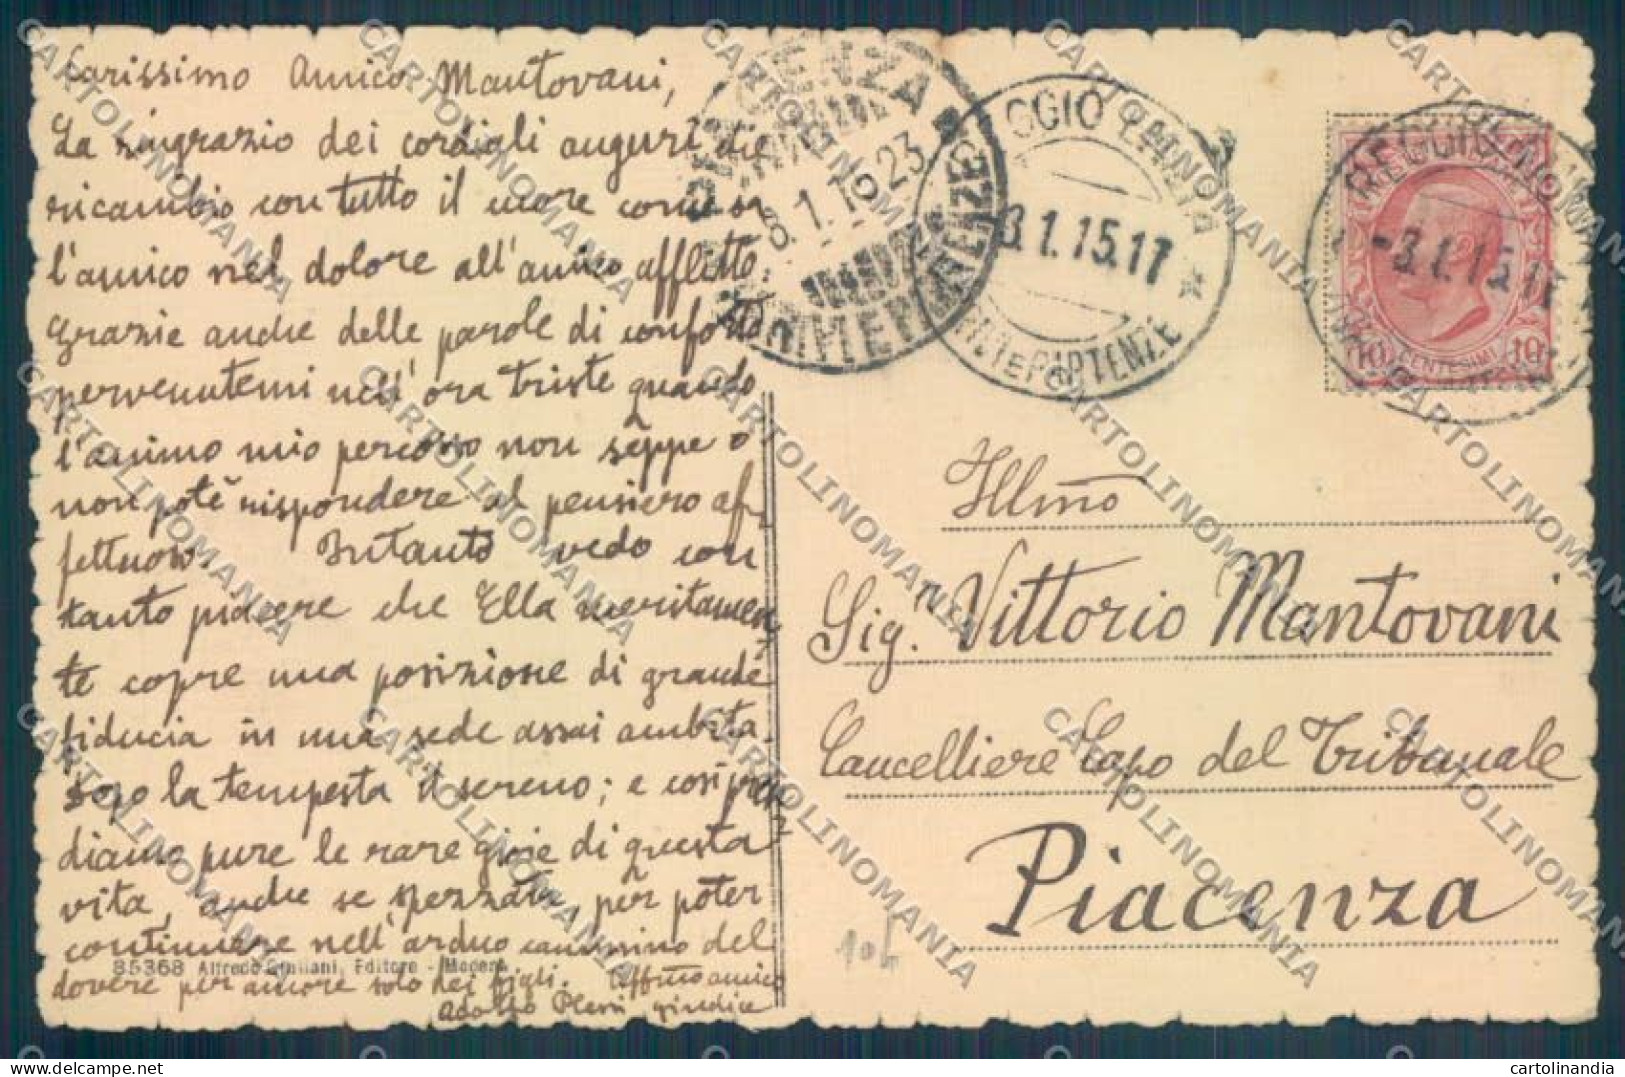 Carissimo Amico Mantovani,
La ringrazio dei cordiali auguri che
ricambio con tutto il cuore come
l'amico nel dolore all'amico afflitto:
grazie anche delle parole di conforto
pervenutemi nell'ora triste quando
l'animo mio percosso non seppe o
non potè rispondere al pensiero af-
fettuoso. Intanto vedo con
tanto piacere che Ella meritamen-
te copre una posizione di grande
fiducia in una sede assai ambita.
Dopo la tempesta il sereno; e così pren-
diamo pure le rare gioie di questa
vita, anche se spezzate, per poter
continuare nell'arduo cammino del
dovere per amore solo dei figli. Affmo amico
Adolfo giudice
85368 Alfredo Editore - Modena
PIACENZA
8.1.15.23
ARRIVI E PARTENZE
3.1.15.17
ARRIVI E PARTENZE
REGGIO
-3.1.15.17
10 CENTESIMI 10
Illmo
Sig.r Vittorio Mantovani
Cancelliere Capo del Tribunale
Piacenza
CARTOLINOMANIA
www.delcampe.net
cartolinandia